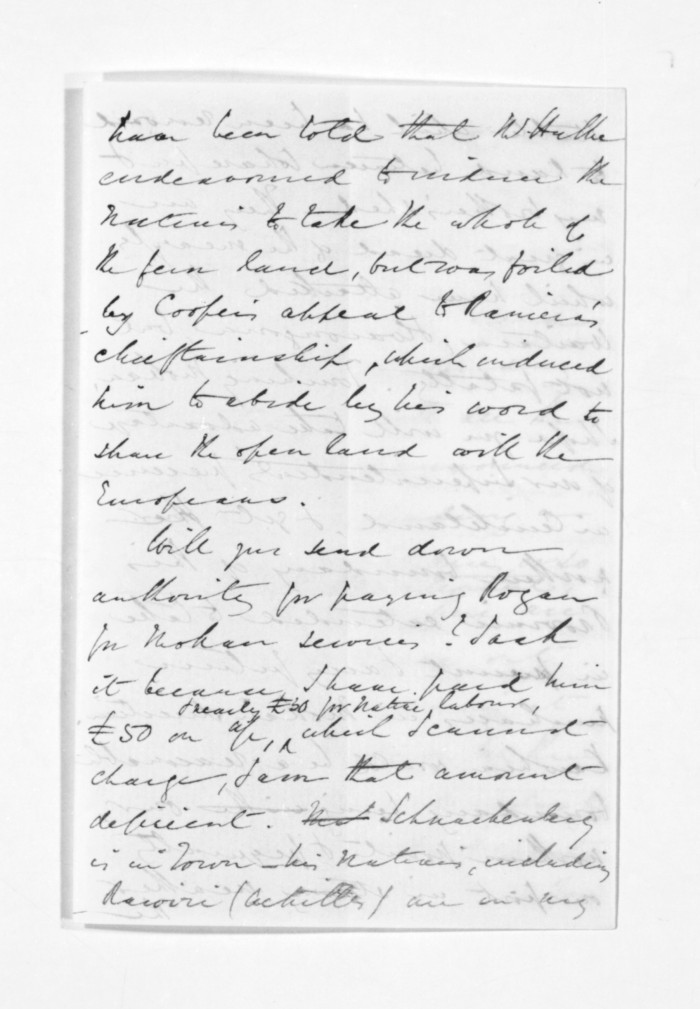 have been told that Mr. Hulke
endeavoured to induce the
Natives to take the whole of
the fern land, but was foiled
by Cooper's appeal to Raniera's
chieftainship, which induced
him to abide by his word to
share the open land with the
Europeans.
Will you send down
authority for paying Rogan
for Mokau services? I ask
it because I have paid him
& nearly £50 for Native labour,
£50 on a/c, which I cannot
charge, I am that amount
deficient. Schnackenberg
is in Town - his Natives, including
Rawiri (Achilles) are in my